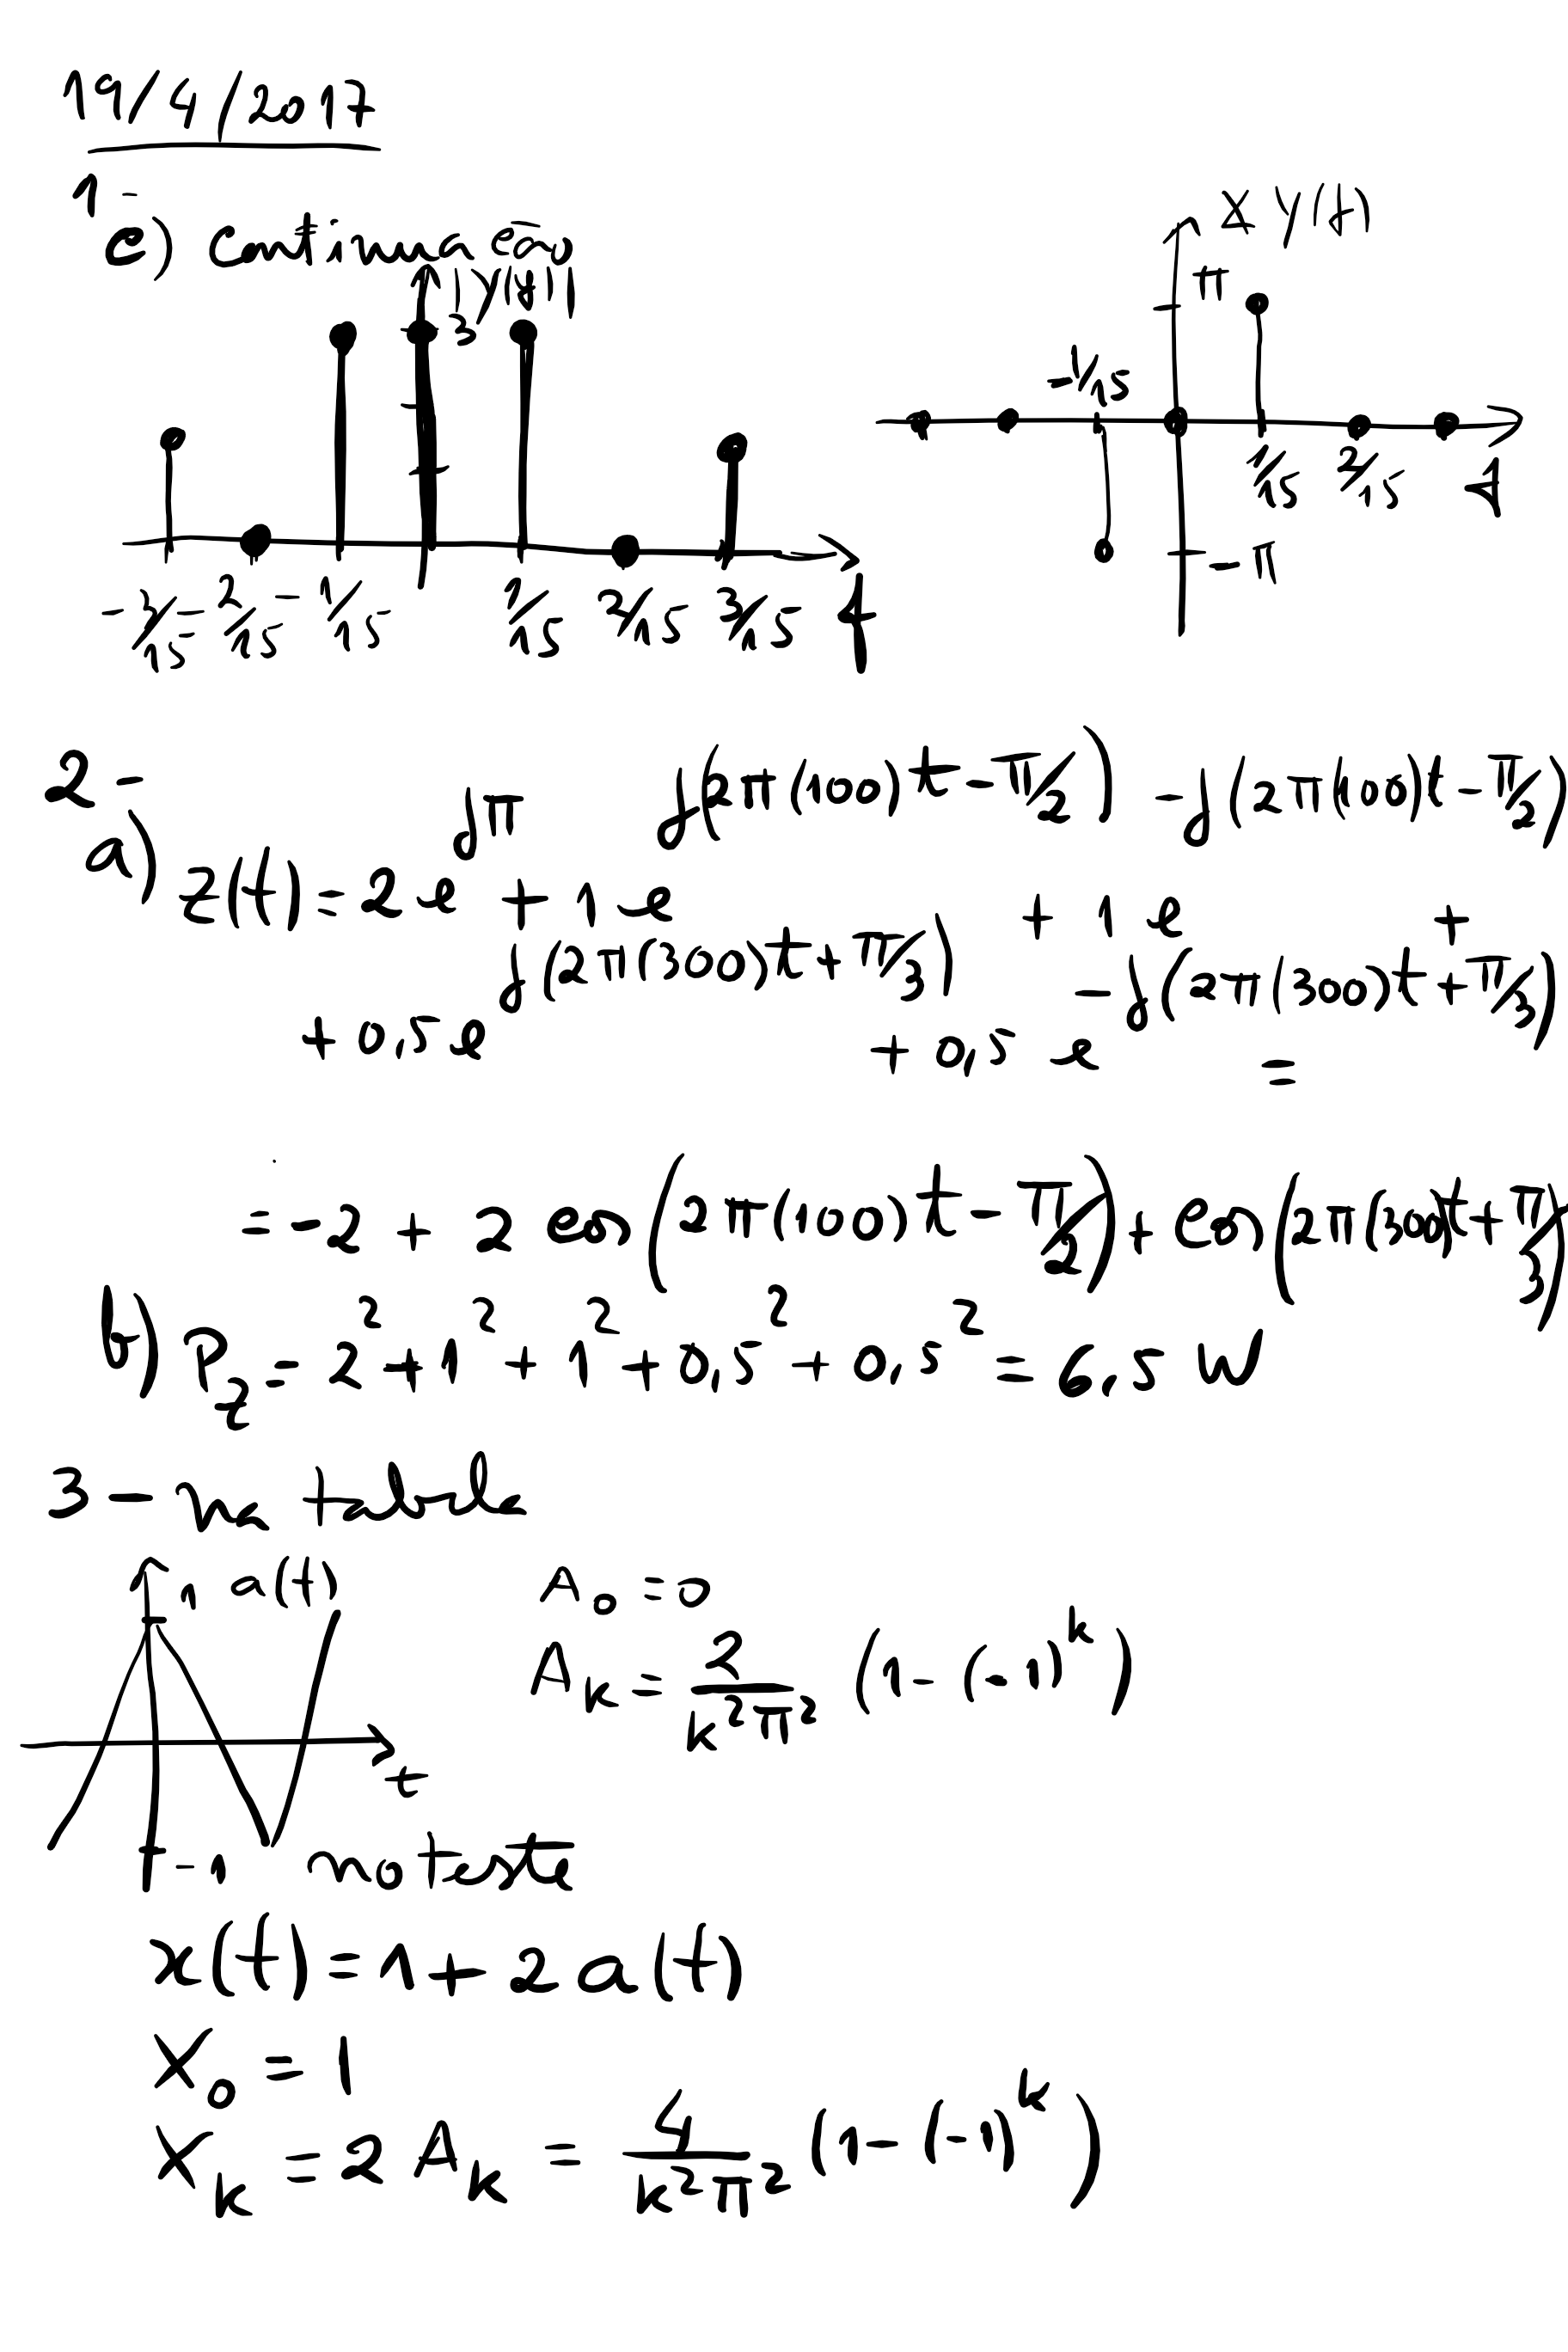 19/4/2017
1-
e) continuação
|Y(f)|
3
-3/15 -2/15 -1/15 1/15 2/15 3/15 f
∠Y(f)
π
-1/15
1/15 2/15 f
-π
2-
a) z(t) = 2 e^{jπ} + 1 e^{j(2π(100)t - π/2)} + 1 e^{-j(2π(100)t - π/2)} +
+ 0,5 e^{j(2π(300)t + π/3)} + 0,5 e^{-j(2π(300)t + π/3)} =
= -2 + 2 cos(2π(100)t - π/2) + cos(2π(300)t + π/3)
b) P_z = 2² + 1² + 1² + 0,5² + 0,5² = 6,5 W
3 - na tabela
1 a(t)
t
-1
A_0 = 0
A_k = 2/(k²π²) (1 - (-1)^k)
no teste
x(t) = 1 + 2 a(t)
X_0 = 1
X_k = 2 A_k = 4/(k²π²) (1 - (-1)^k)